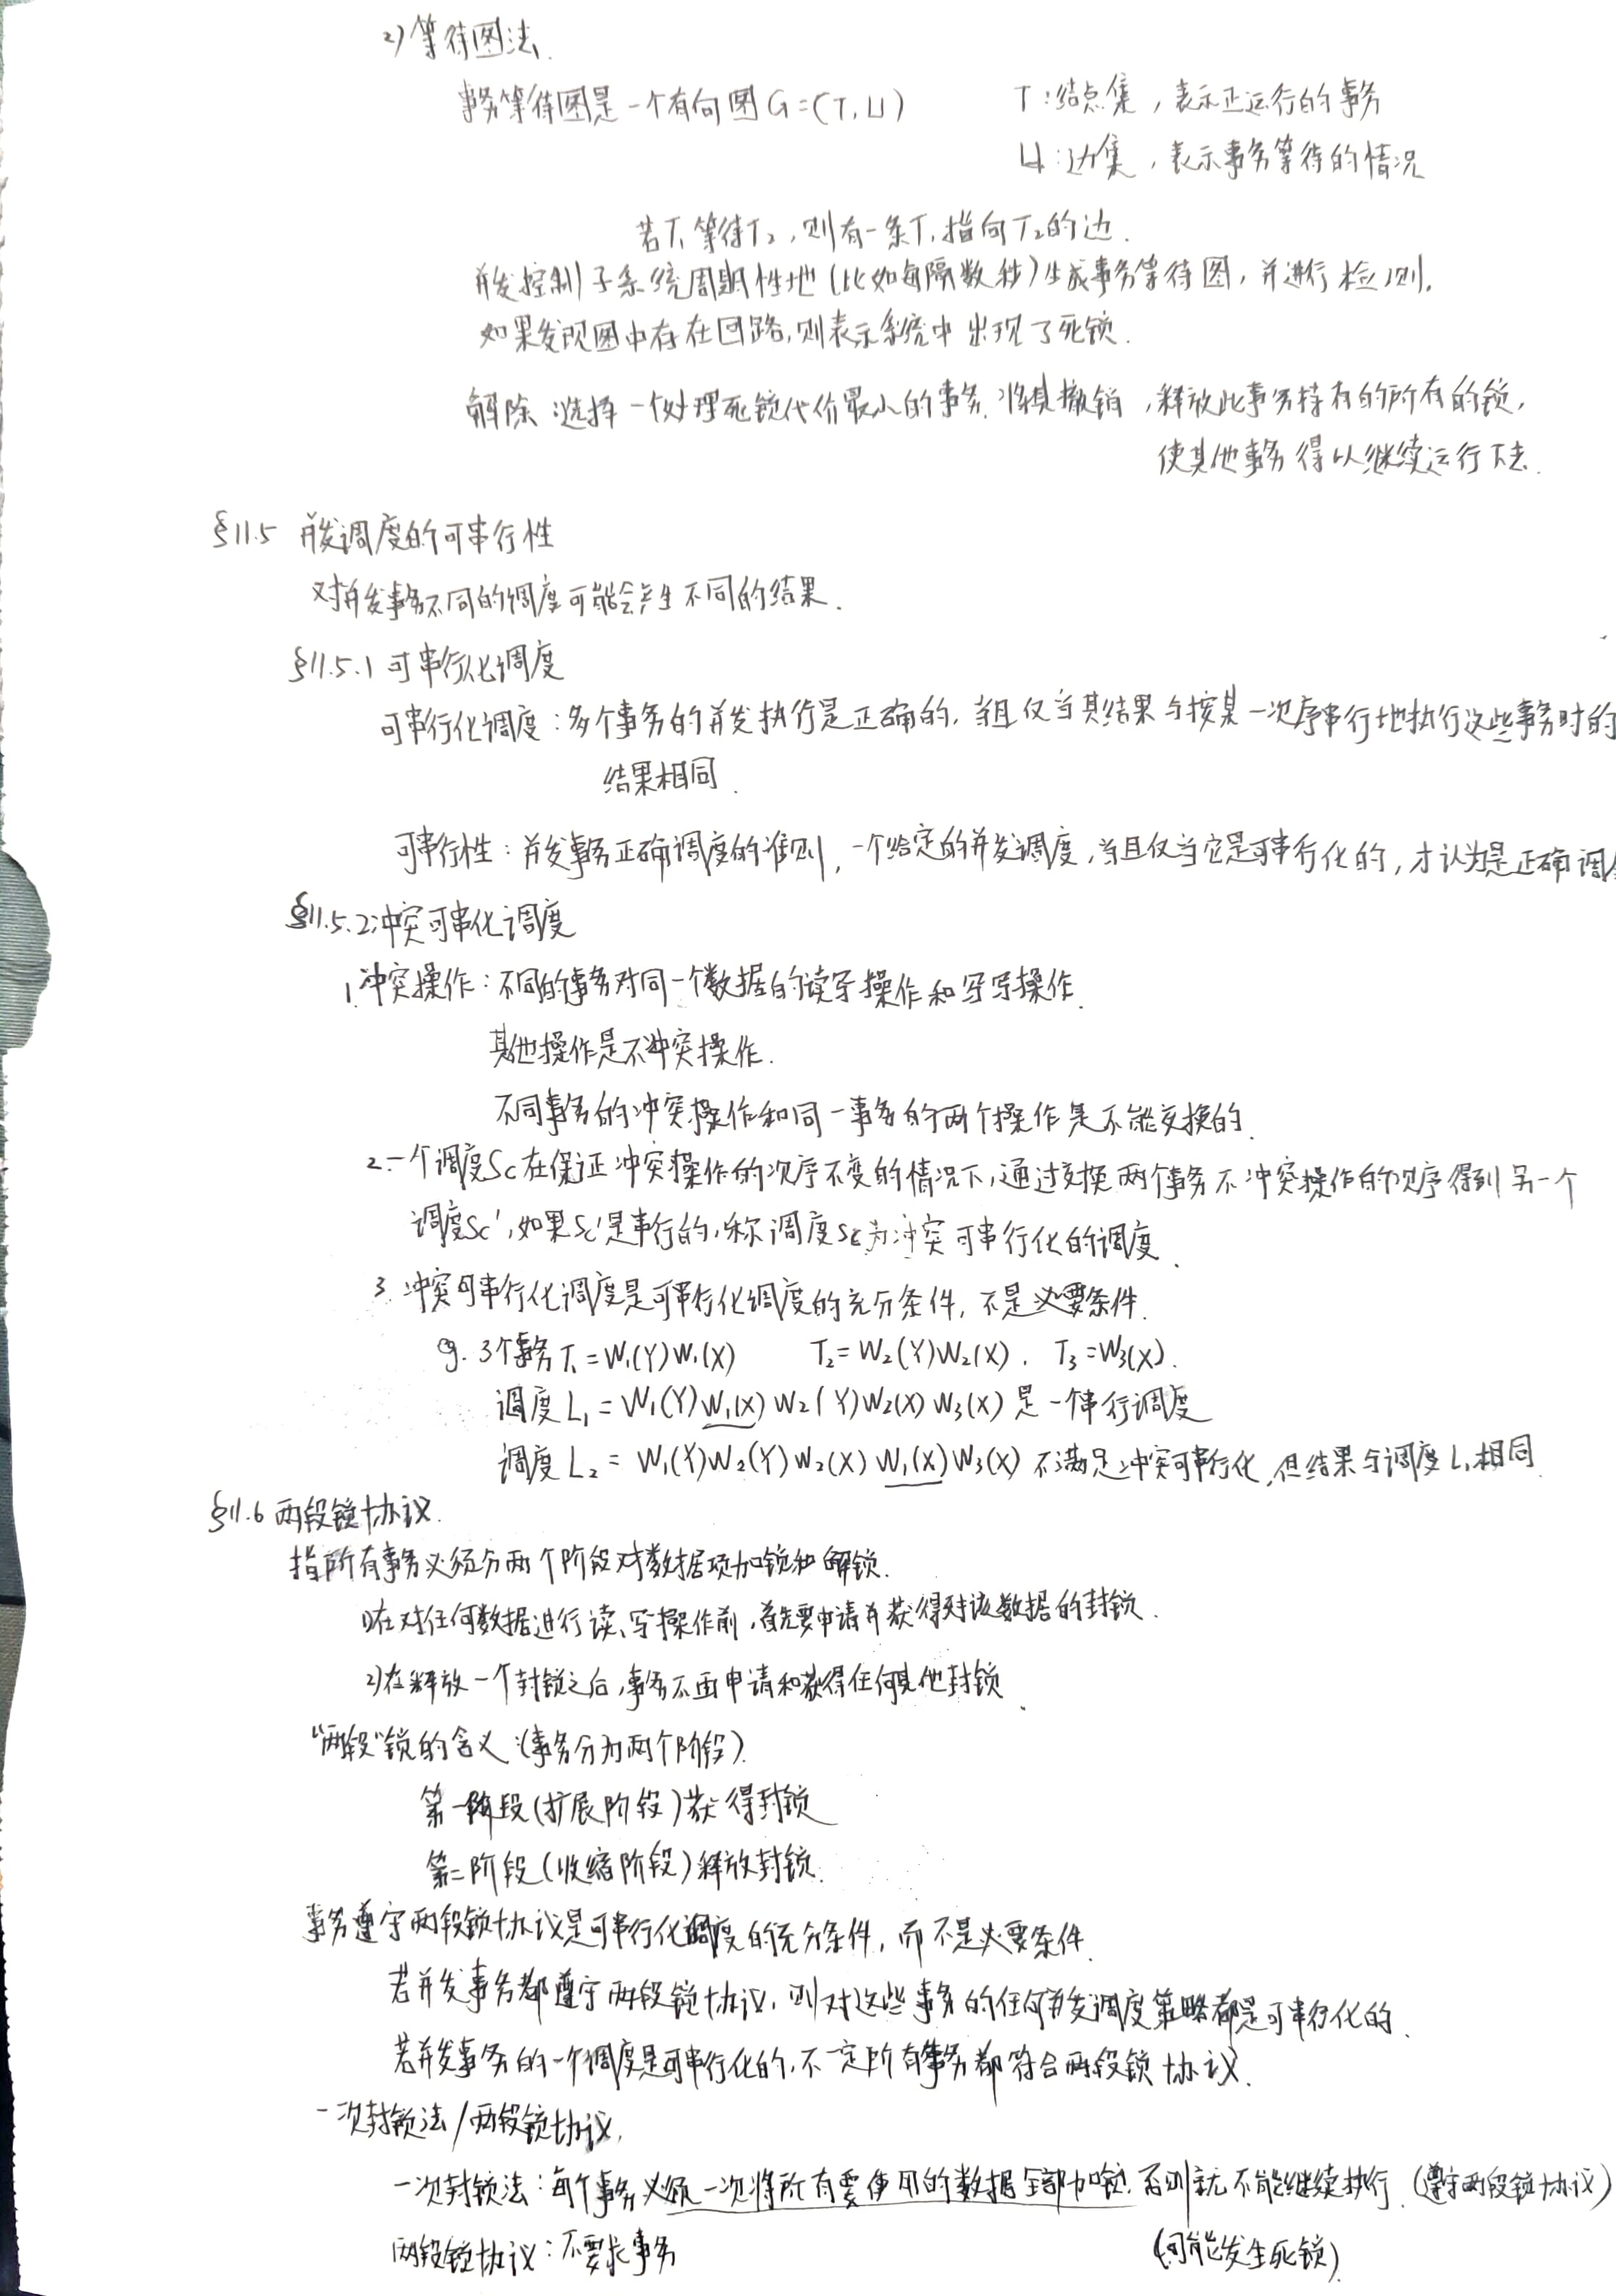 2) 等待图法.
事务等待图是一个有向图 G=(T,U)
T:结点集,表示正运行的事务
U:边集,表示事务等待的情况
若T₁等待T₂,则有一条T₁指向T₂的边.
并发控制子系统周期性地(比如每隔数秒)生成事务等待图,并进行检测.
如果发现图中存在回路,则表示系统中出现了死锁.
解除:选择一个处理死锁代价最小的事务.将其撤销,释放此事务持有的所有的锁,
使其他事务得以继续运行下去.
§11.5 并发调度的可串行性
对并发事务不同的调度可能会产生不同的结果.
§11.5.1 可串行化调度
可串行化调度:多个事务的并发执行是正确的,当且仅当其结果与按某一次序串行地执行这些事务时的
结果相同.
可串行性:并发事务正确调度的准则,一个给定的并发调度,当且仅当它是可串行化的,才认为是正确调
§11.5.2 冲突可串化调度
1.冲突操作:不同的事务对同一个数据的读写操作和写写操作.
其他操作是不冲突操作.
不同事务的冲突操作和同一事务的两个操作是不能交换的.
2.一个调度Sc在保证冲突操作的次序不变的情况下,通过交换两个事务不冲突操作的次序得到另一个
调度Sc',如果Sc'是串行的,称调度Sc为冲突可串行化的调度.
3.冲突可串行化调度是可串行化调度的充分条件,不是必要条件.
eg. 3个事务T₁=W₁(Y)W₁(X) T₂=W₂(Y)W₂(X). T₃=W₃(X).
调度L₁=W₁(Y)W₁(X)W₂(Y)W₂(X)W₃(X)是一个串行调度
调度L₂=W₁(Y)W₂(Y)W₂(X)W₁(X)W₃(X)不满足冲突可串行化,但结果与调度L₁相同.
§11.6 两段锁协议.
指所有事务必须分两个阶段对数据项加锁和解锁.
1)在对任何数据进行读、写操作前,首先要申请并获得对该数据的封锁.
2)在释放一个封锁之后,事务不再申请和获得任何其他封锁.
"两段"锁的含义:(事务分为两个阶段).
第一阶段(扩展阶段)获得封锁
第二阶段(收缩阶段)释放封锁.
事务遵守两段锁协议是可串行化调度的充分条件,而不是必要条件.
若并发事务都遵守两段锁协议,则对这些事务的任何并发调度策略都是可串行化的.
若并发事务的一个调度是可串行化的,不一定所有事务都符合两段锁协议.
一次封锁法/两段锁协议.
一次封锁法:每个事务必须一次将所有要使用的数据全部加锁.否则就不能继续执行.(遵守两段锁协议)
两段锁协议:不要求事务 (可能发生死锁).